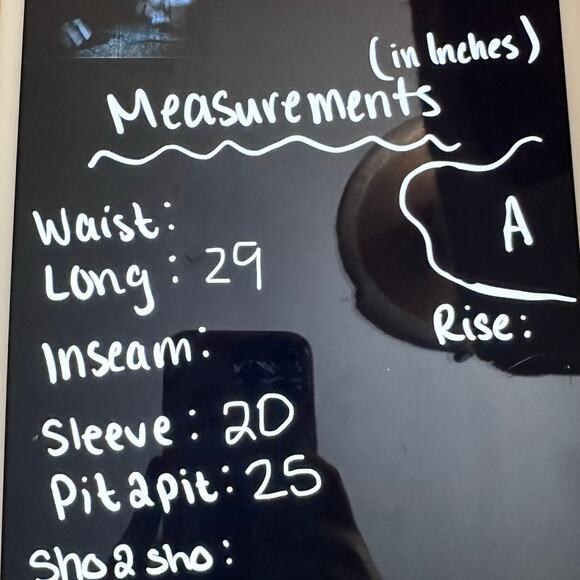 (in Inches)
Measurements
A
Waist:
Long: 29
Rise:
Inseam:
Sleeve: 20
Pit2pit: 25
Sho2sho: